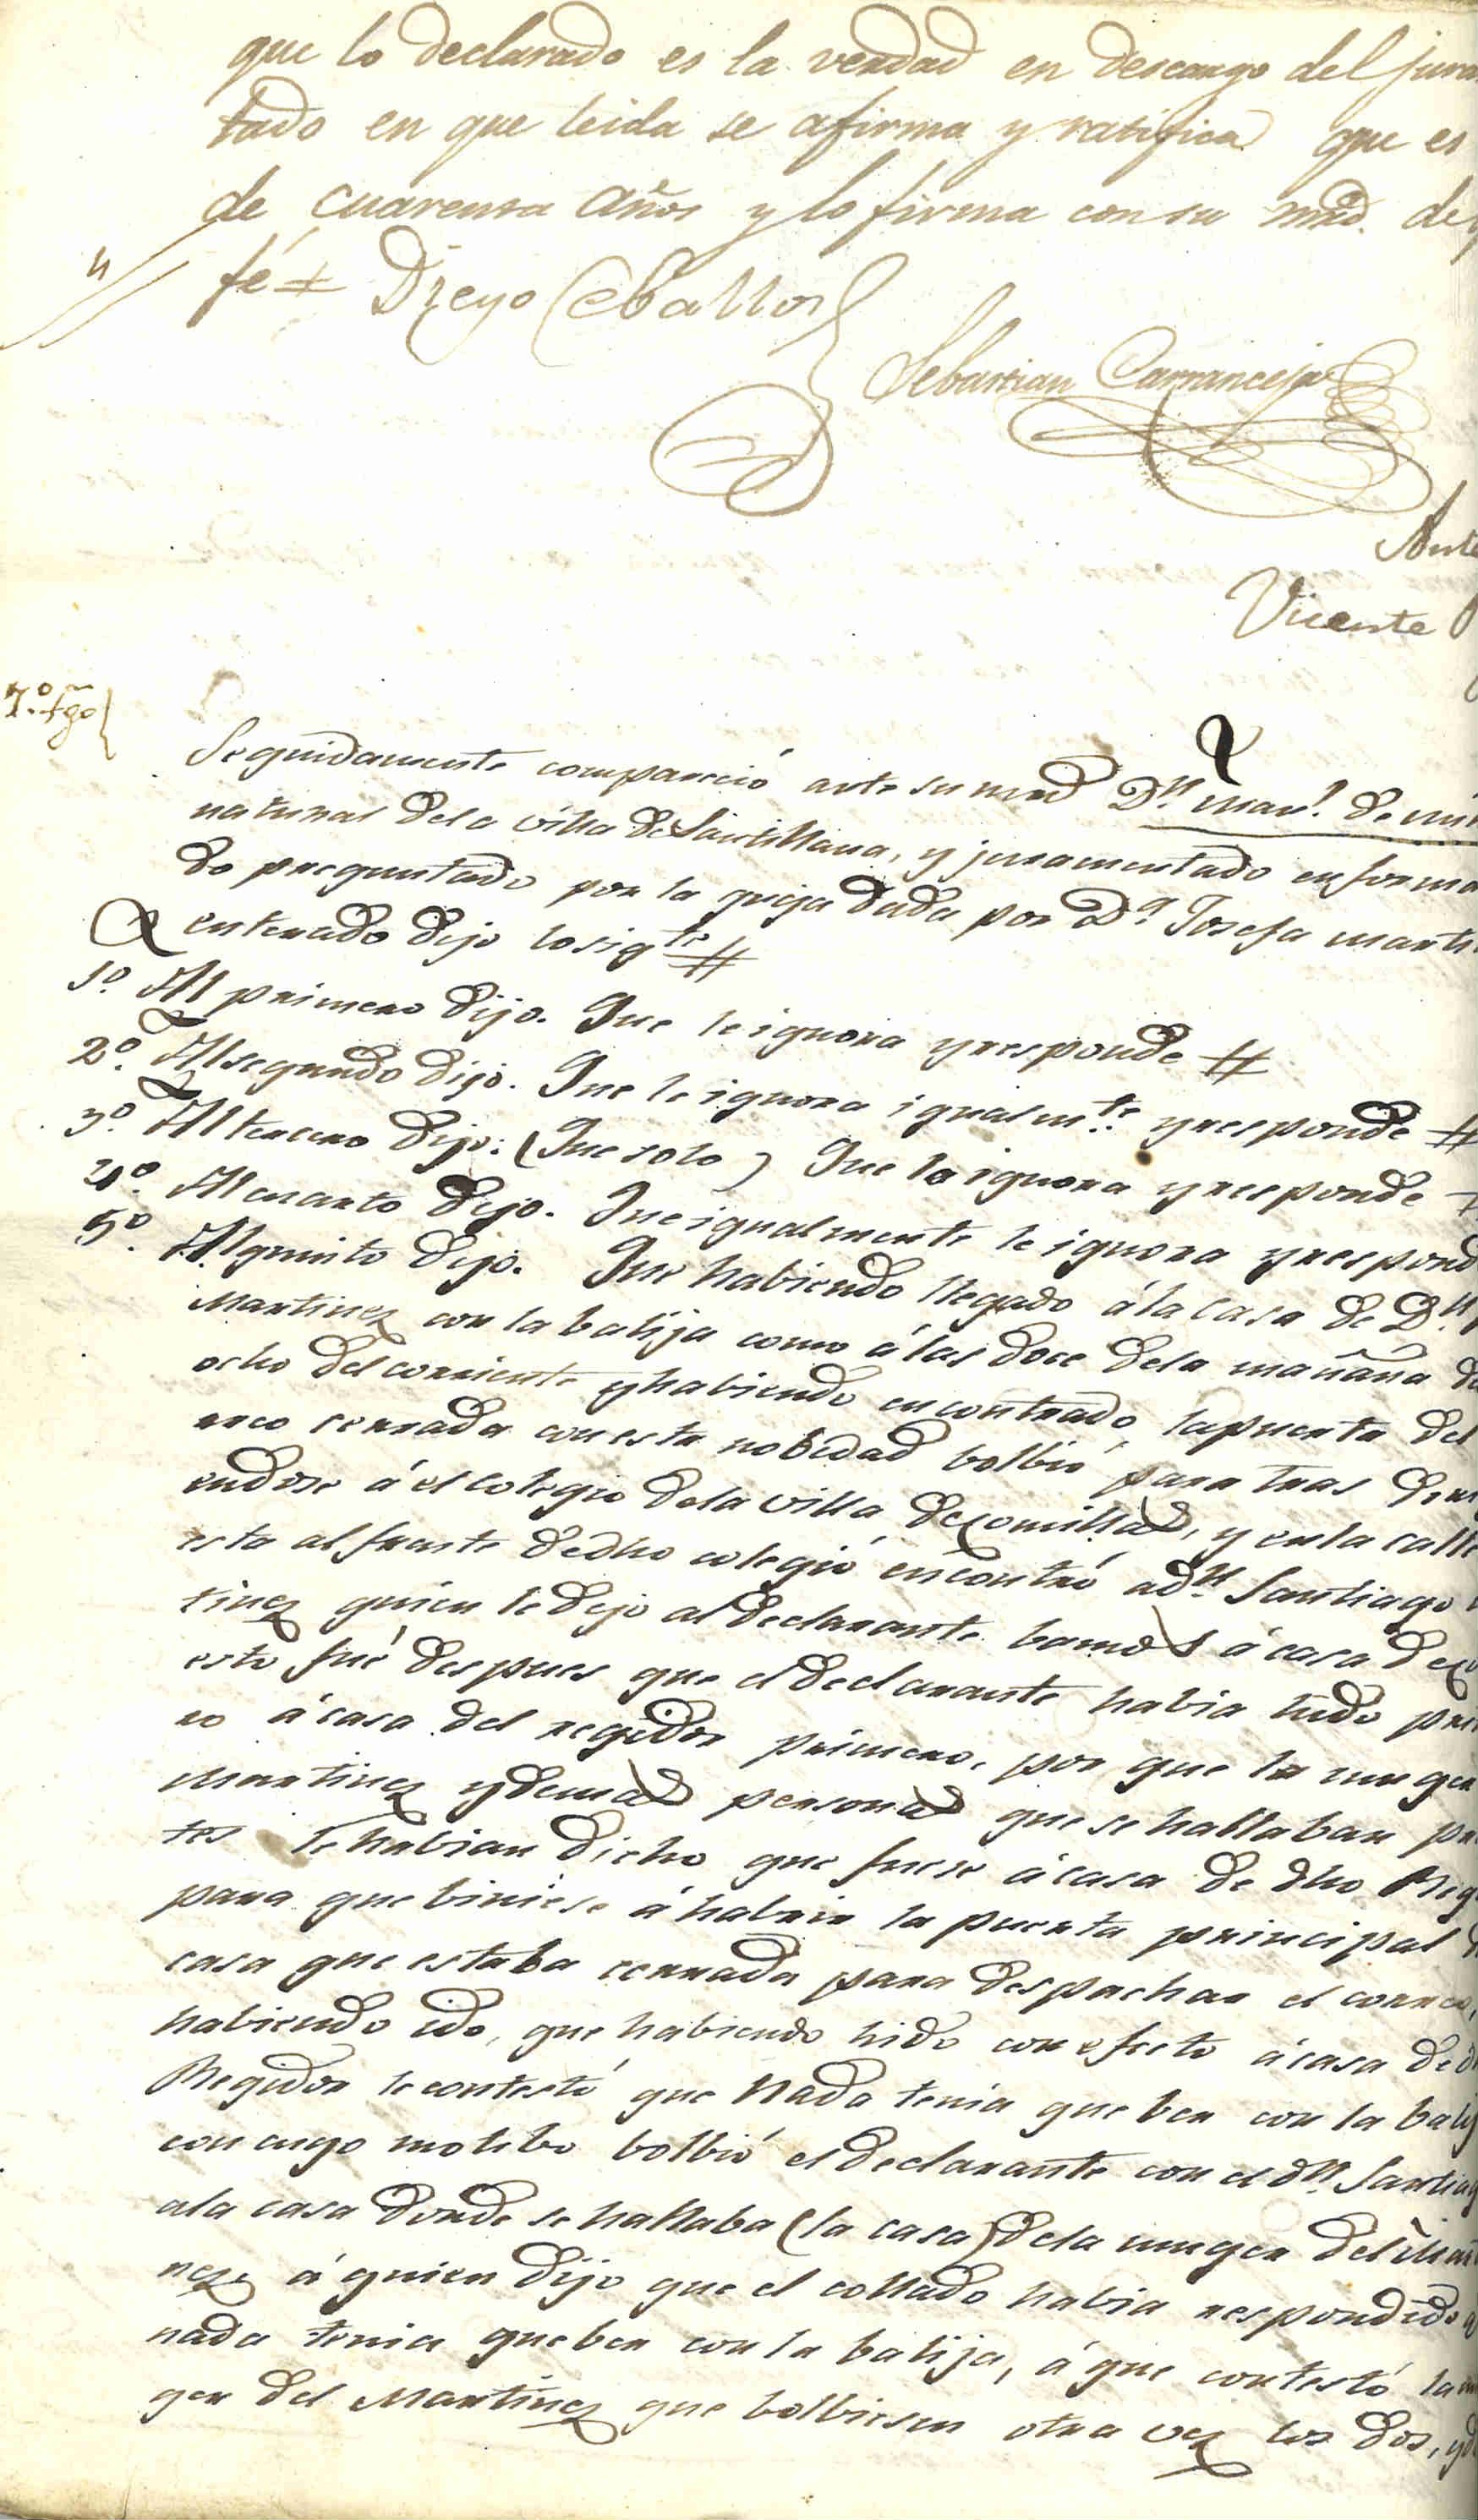 que lo declarado es la verdad en descargo del jura
tado en que leida se afirma y ratifica que es
de cuarenta años y lo firma con su mrd. de
fé Diego Ceballos
Sebastian Carranceja
Ante
Vicente
7.º tgo
Seguidamente comparció ante su mrd Dn. Man.l de
natural dela villa de Santillana, y juramentado en forma
do preguntado por la queja dada por Dª Josefa marti
enterado dijo lo sigte
1º. Al primero dijo. Que le ignora y responde
2º. Al segundo dijo. Que le ignora igualmte. y responde
3º. Al tercero dijo: (Que solo) Que le ignora y responde
4º. Al cuarto dijo. Que igualmente le ignora y respond
5º. Al quinto dijo. Que habiendo llegado á la casa de Dn
Martinez con la balija como á las doce dela mañana d
ocho del corriente y habiendo encontrado la puerta del
reo cerrada con esta nobedad bolbió para tras
endose á el colegio dela villa de comillas, y en la calle
esta al frente de dho colegió encontró a dn. Santiago
tinez quien le dijo al declarante bamos á casa de
esto fué despues que el declarante habia hido pri
ro á casa del regidor primero, por que la muger
Martinez y demas personas que se hallaban pre
tes le habian dicho que fuese á casa de dho Reg
para que biniese á habrir la puerta principal d
casa que estaba cerrada para despachar el correo,
habiendo ido, que habiendo hido con efecto á casa de d
Regidor le contestó que nada tenia que ber con la balij
con cuyo motibo bolbió el declarante con el dn. Santiag
ala casa donde se hallaba (la casa) dela muger del Mar
nez, á quien dijo que el collado habia respondido
nada tenia que ber con la balija, á que contestó la
ger del Martinez que bolbiesen otra vez los dos, y